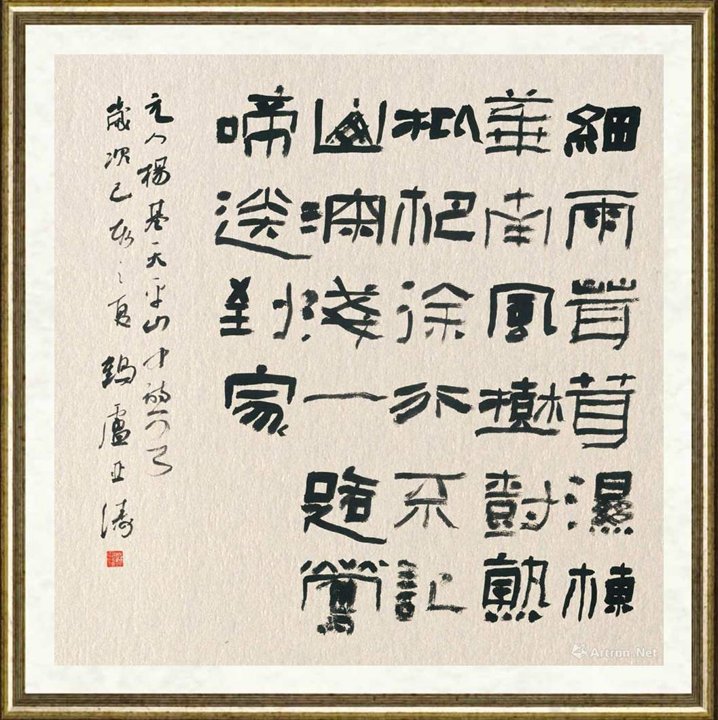 細雨茸茸濕楝
華南風樹尌熟
枇杷徐行不記
山深淺一路鶯
啼送到家
元人楊基天平山中詩
歲次己亥之夏 鶴盧亚濤
Artron.Net